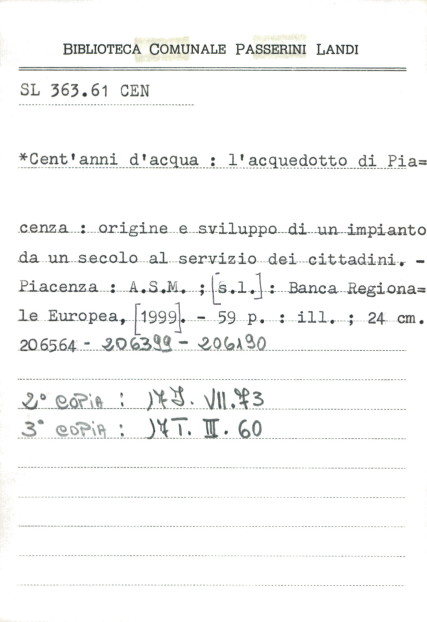 BIBLIOTECA COMUNALE PASSERINI LANDI
SL 363.61 CEN
*Cent'anni d'acqua : l'acquedotto di Pia=
cenza : origine e sviluppo di un impianto
da un secolo al servizio dei cittadini. -
Piacenza : A.S.M. ; [s.l.] : Banca Regiona=
le Europea, [1999]. - 59 p. : ill. ; 24 cm.
206564 - 206399 - 206190
2° COPIA : 17J. VII.73
3° COPIA : 17T. III. 60